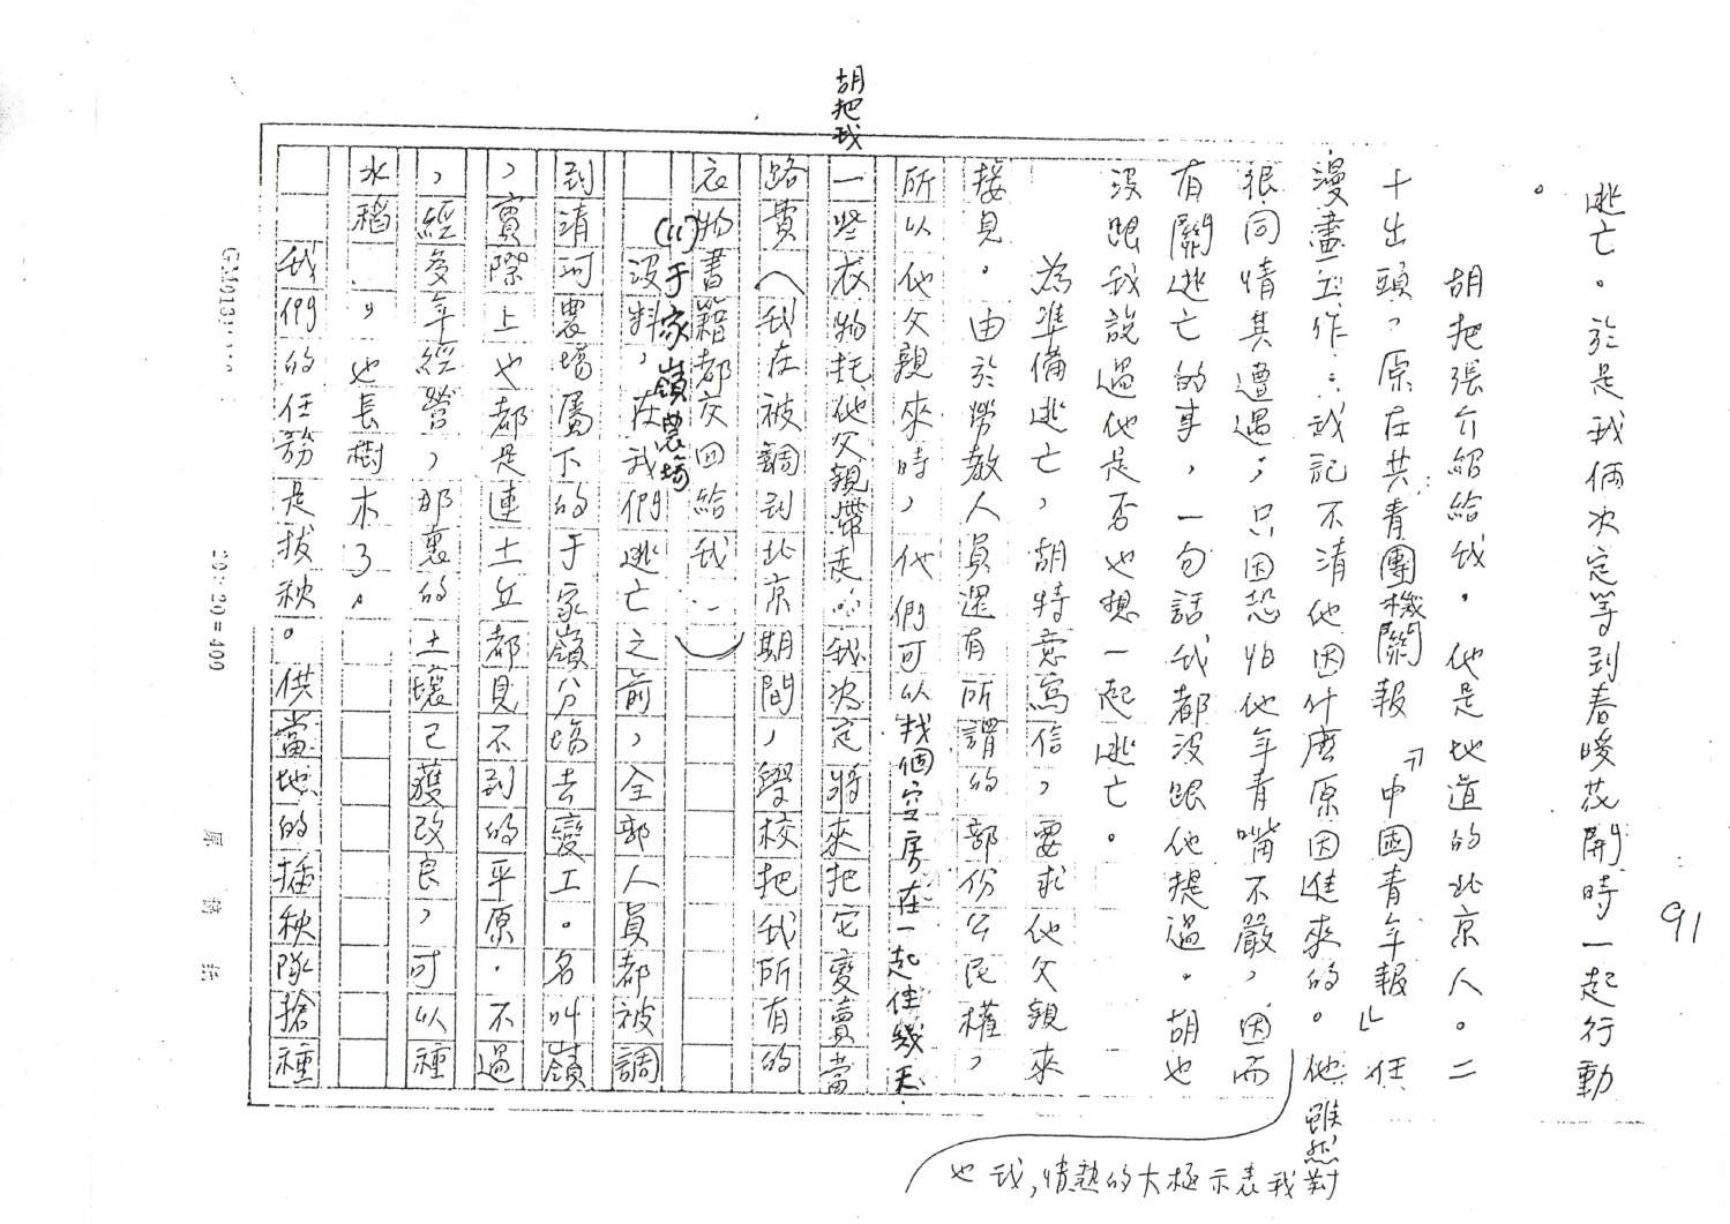 91
逃亡。於是我倆決定等到春暖花開時一起行動
。
胡把張介紹給我。他是地道的北京人。二
十出頭，原在共青團機關報『中國青年報』任
漫畫工作…我記不清他因什麽原因進來的。他
雖然對我表示極大的熱情,我也
很同情其遭遇；只因恐怕他年青嘴不嚴，因而
有關逃亡的事，一句話我都没跟他提過。胡也
没跟我説過他是否也想一起逃亡。
為準備逃亡，胡特意寫信，要求他父親來
接見。由於勞教人員還有所謂的部份公民權，
所以他父親來時，他們可以找個空房在一起住幾天
胡把我
一些衣物托他父親帶走…我决定將來把它變賣當
路費（我在被調到北京期間，學校把我所有的
衣物書籍都交回給我…）
(11)于家嶺農場
没料，在我們逃亡之前，全部人員都被調
到清河農場屬下的于家嶺分場去變工。名叫嶺
，實際上也都是連土丘都見不到的平原．不過
，經多年經營，那裏的土壤已獲改良，可以種
水稻…，也長樹木了。
我們的任務是拔秧。供當地的插秧隊搶種
20×20=400
原稿紙